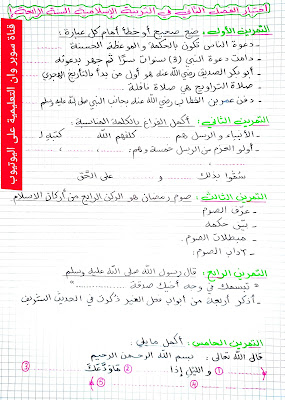 اختبار الفصل الثاني في التربية الإسلامية السنة الرابعة
التمرين الأول: ضع صحيح أو خطأ أمام كل عبارة:
- دعوة الناس تكون بالحكمة والموعظة الحسنة
- دامت دعوة النبي (3) سنوات سرًّا ثم جهر بدعوته
- أبو بكر الصديق رضي الله عنه هو أول من بدأ بالتأريخ الهجري
- صلاة التراويح هي صلاة نافلة
- دفن عمر بن الخطاب رضي الله عنه بجانب النبي صلى الله عليه وسلم
التمرين الثاني: أكمل الفراغ بالكلمة المناسبة:
- الأنبياء و الرسل هم ........ كلفهم الله ........ كتبه لـ ........
- أولو العزم من الرسل خمسة وهم: ........،
سمّوا بذلك ........ و ........ على الحق
التمرين الثالث: صوم رمضان هو الركن الرابع من أركان الإسلام
- عرّف الصوم
- بيّن حكمه
- مبطلات الصوم
- آداب الصوم
التمرين الرابع: قال رسول الله صلى الله عليه وسلم
« تبسمك في وجه أخيك صدقة ........ »
- أذكر أربعة من أبواب فعل الخير ذكرت في الحديث الشريف
التمرين الخامس: أكمل ما يلي:
قال الله تعالى: بسم الله الرحمن الرحيم
﴿ ........ ① و الليل إذا ........ ② ما ودّعك ........ ③
........ ④ ........ ⑤ ﴾
قناة سوبر وان التعليمية على اليوتيوب